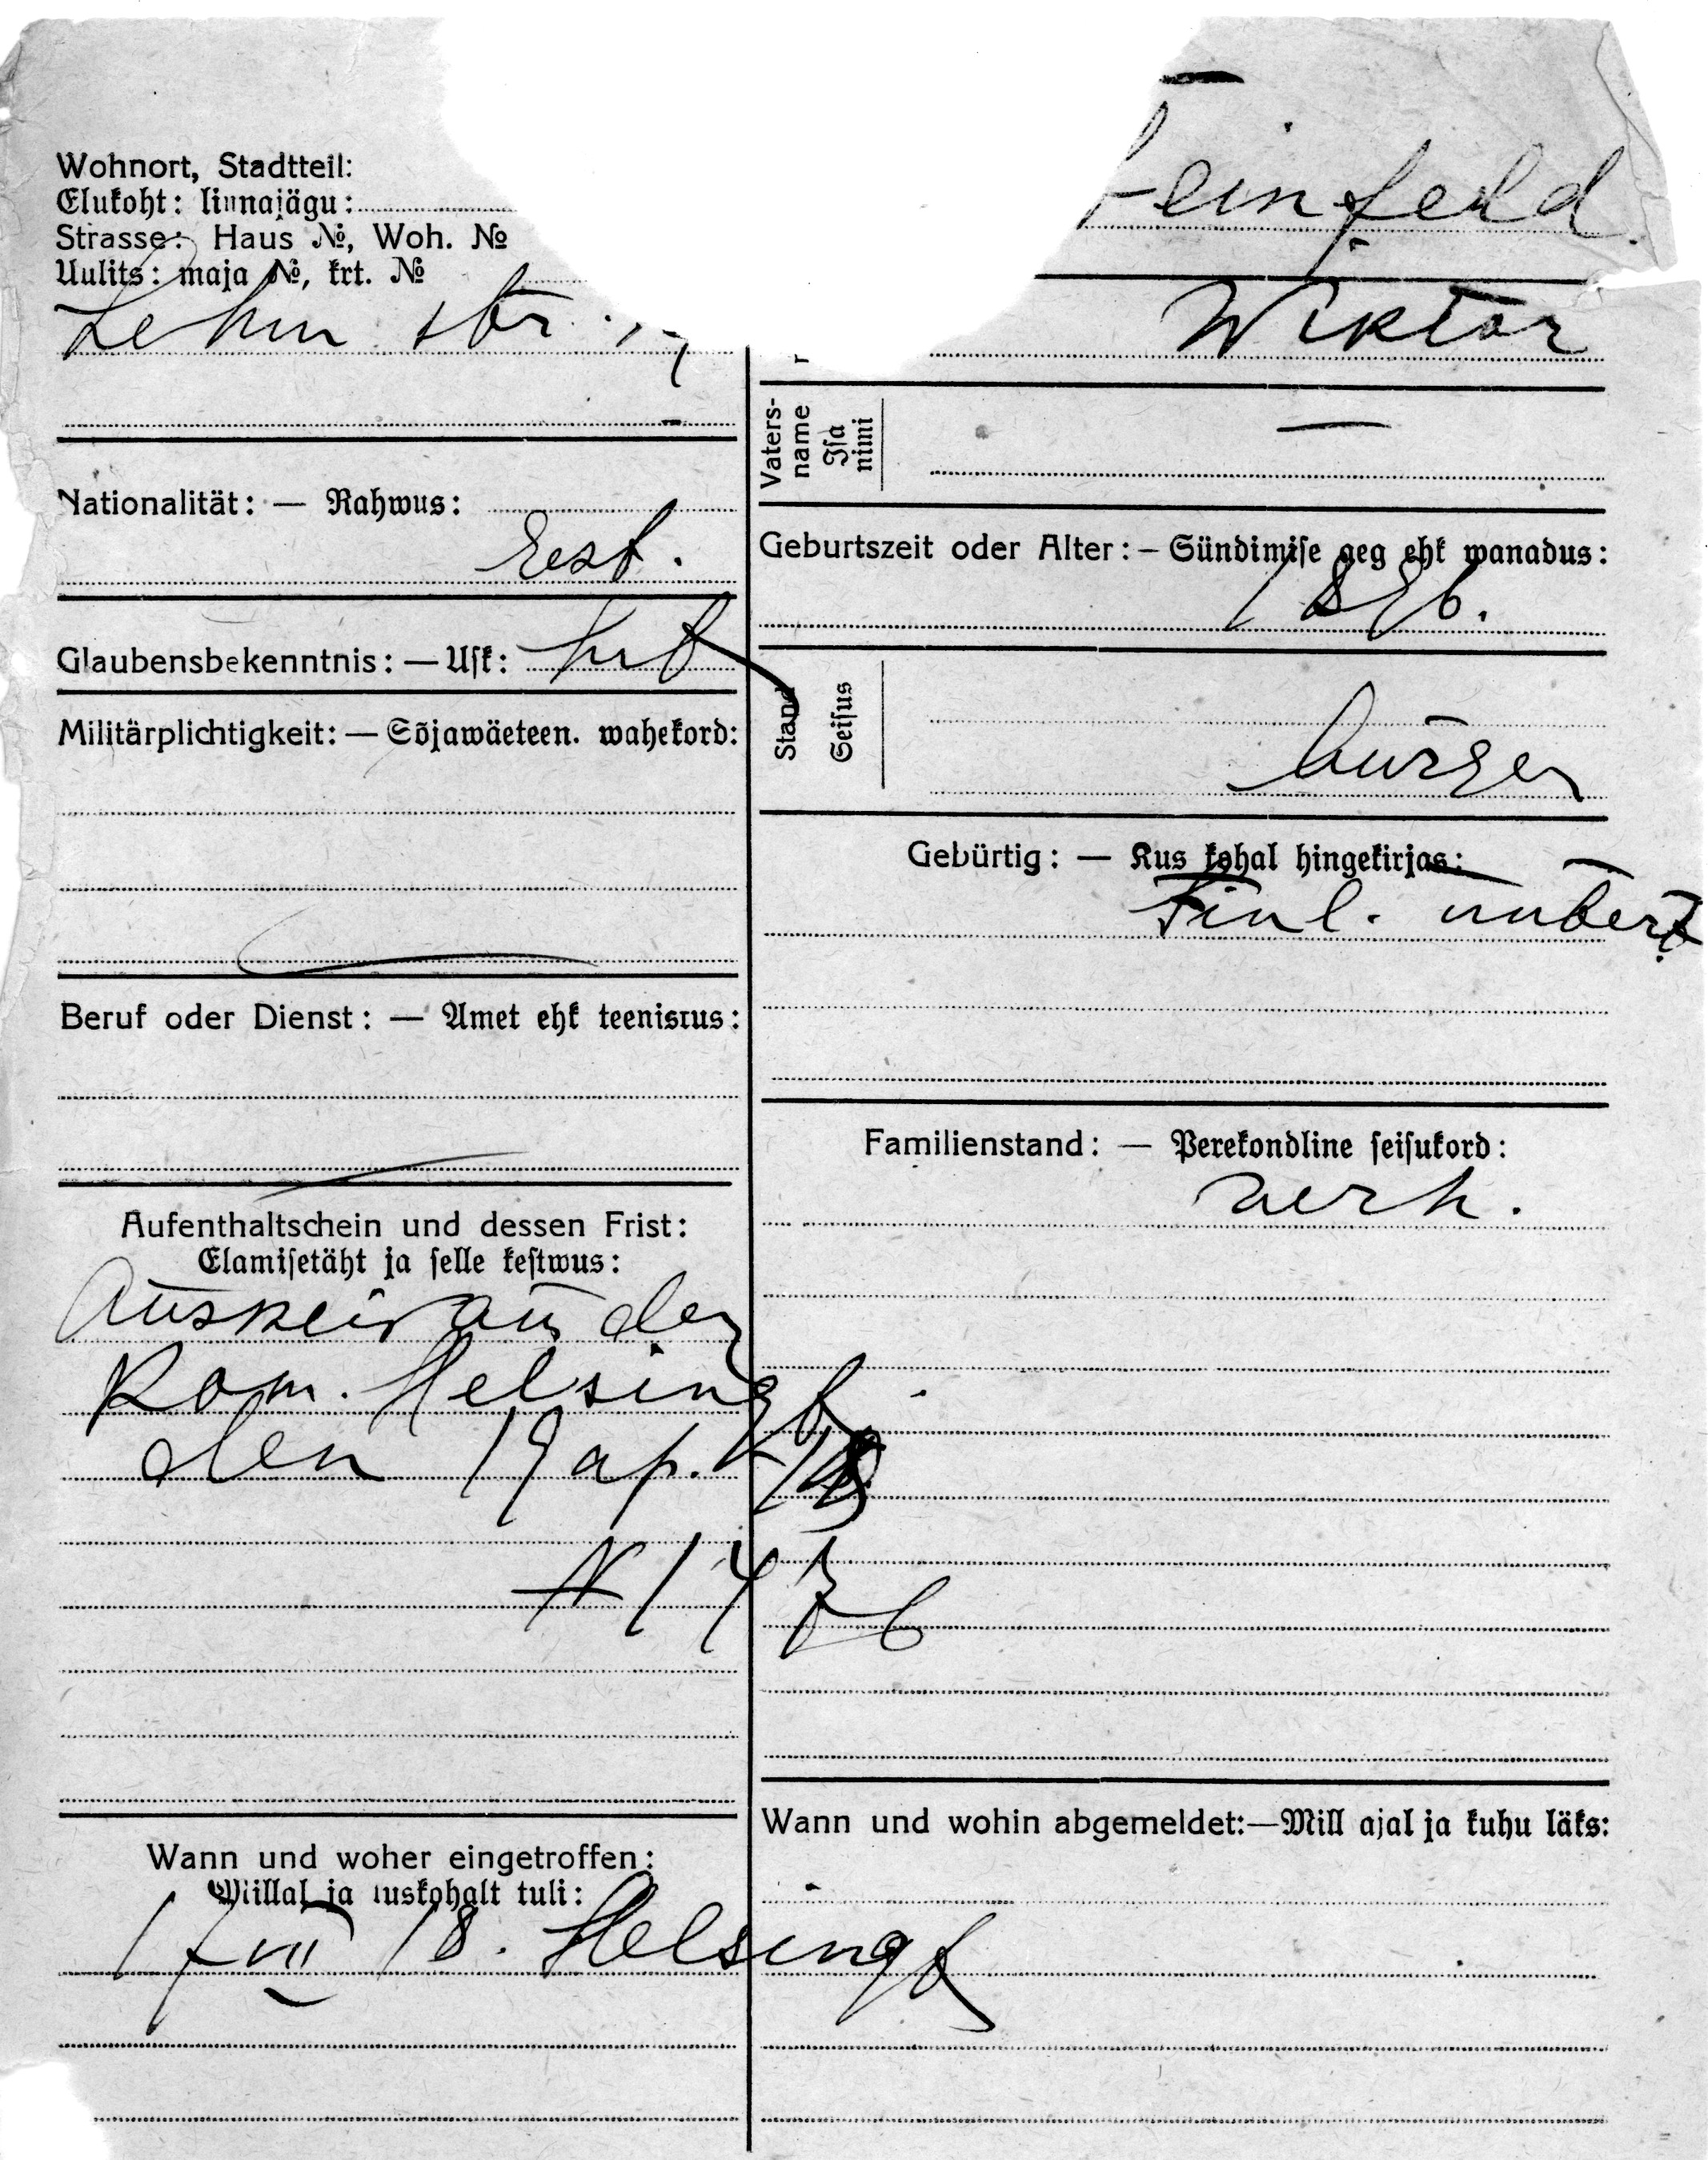 Wohnort, Stadtteil:
Elukoht: linnajägu:
Strasse: Haus №, Woh. №
Uulits: maja №, krt. №
Lehm str.
Nationalität: — Rahwus:
Eest.
Glaubensbekenntnis: — Usk:
lut
Militärplichtigkeit: — Sõjawäeteen. wahekord:
Beruf oder Dienst: — Amet ehk teenistus:
Aufenthaltschein und dessen Frist:
Elamisetäht ja selle kestwus:
aus der
Kom. Helsingf.
den 19 ap. 18
N 1476
Wann und woher eingetroffen:
Millal ja kuskohalt tuli:
17 VII 18. Helsingf
feinfeld
Wiktor
Vaters-
name
Isa
nimi
—
Geburtszeit oder Alter: – Sündimise aeg ehk wanadus:
1896.
Stand
Seisus
bürger
Gebürtig: — Kus kohal hingekirjas:
Finl.
Familienstand: — Perekondline seisukord:
verh.
Wann und wohin abgemeldet:—Mill ajal ja kuhu läks: